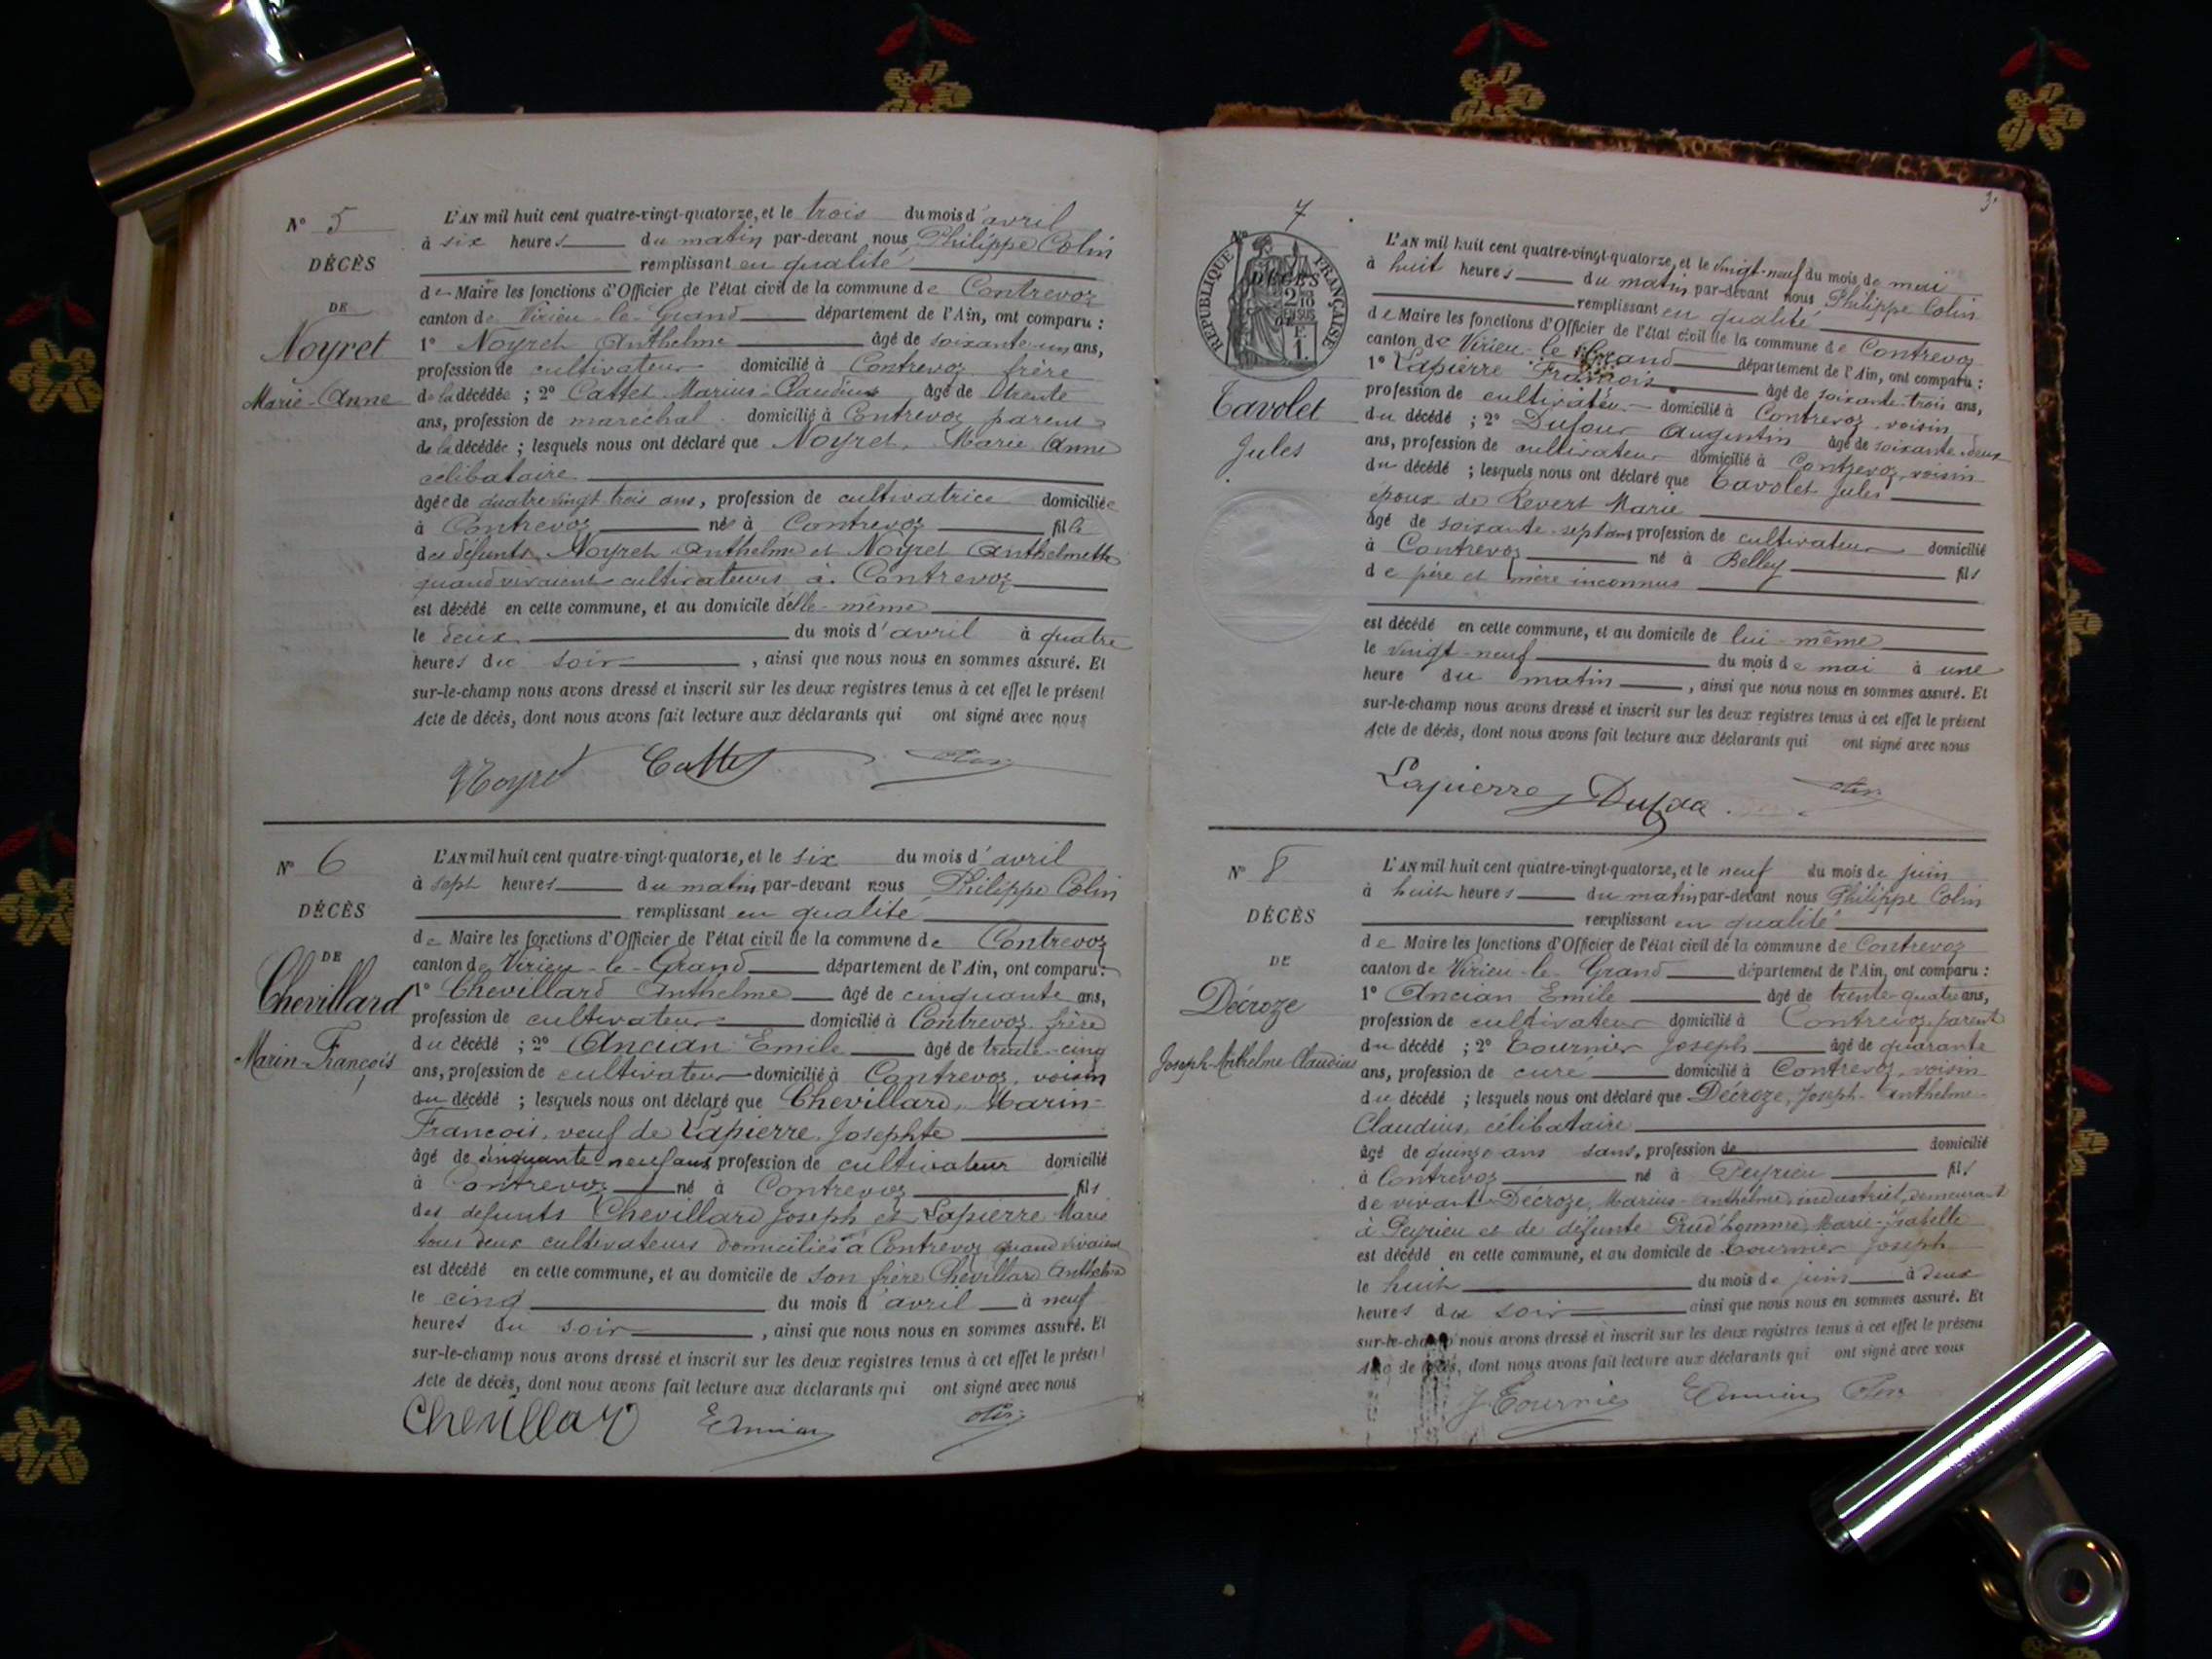 N° 5
DÉCÈS
DE
Noyret
Marie-Anne
L'AN mil huit cent quatre-vingt-quatorze, et le trois du mois d'avril
à six heures du matin par-devant nous Philippe Colin
remplissant en qualité
de Maire les fonctions d'Officier de l'état civil de la commune de Contrevoz
canton de Virieu-le-Grand département de l'Ain, ont comparu :
1° Noyret Anthelme âgé de soixante-un ans,
profession de cultivateur domicilié à Contrevoz frère
de la décédée ; 2° Cattet Marius-Claudius âgé de trente
ans, profession de maréchal domicilié à Contrevoz parent
de la décédée ; lesquels nous ont déclaré que Noyret, Marie Anne
célibataire
âgée de quatre vingt trois ans, profession de cultivatrice domiciliée
à Contrevoz née à Contrevoz fille
des défunts Noyret Anthelme et Noyret Anthelmette
quand vivaient cultivateurs à Contrevoz
est décédé en cette commune, et au domicile d'elle-même
le deux du mois d'avril à quatre
heures du soir, ainsi que nous nous en sommes assuré. Et
sur-le-champ nous avons dressé et inscrit sur les deux registres tenus à cet effet le présent
Acte de décès, dont nous avons fait lecture aux déclarants qui ont signé avec nous
Noyret Cattet Colin
N° 6
DÉCÈS
DE
Chevillard
Marin-François
L'AN mil huit cent quatre-vingt-quatorze, et le six du mois d'avril
à sept heures du matin par-devant nous Philippe Colin
remplissant en qualité
de Maire les fonctions d'Officier de l'état civil de la commune de Contrevoz
canton de Virieu-le-Grand département de l'Ain, ont comparu :
1° Chevillard Anthelme âgé de cinquante ans,
profession de cultivateur domicilié à Contrevoz frère
du décédé ; 2° Ancian Emile âgé de trente-cinq
ans, profession de cultivateur domicilié à Contrevoz, voisin
du décédé ; lesquels nous ont déclaré que Chevillard, Marin-
François, veuf de Lapierre Josephte
âgé de cinquante-neuf ans profession de cultivateur domicilié
à Contrevoz né à Contrevoz fils
des défunts Chevillard Joseph et Lapierre Marie
tous deux cultivateurs domiciliés à Contrevoz quand vivaient
est décédé en cette commune, et au domicile de son frère Chevillard Anthelme
le cinq du mois d'avril à neuf
heures du soir, ainsi que nous nous en sommes assuré. Et
sur-le-champ nous avons dressé et inscrit sur les deux registres tenus à cet effet le présent
Acte de décès, dont nous avons fait lecture aux déclarants qui ont signé avec nous
Chevillard E Ancian Colin
3.
N° 7
RÉPUBLIQUE FRANÇAISE
DÉCÈS
2/10 EN SUS
DE
F. 1.
Tavolet
Jules
L'AN mil huit cent quatre-vingt-quatorze, et le vingt-neuf du mois de mai
à huit heures du matin par-devant nous Philippe Colin
remplissant en qualité
de Maire les fonctions d'Officier de l'état civil de la commune de Contrevoz
canton de Virieu-le-Grand département de l'Ain, ont comparu :
1° Lapierre François âgé de soixante-trois ans,
profession de cultivateur domicilié à Contrevoz, voisin
du décédé ; 2° Dufour Augustin âgé de soixante-deux
ans, profession de cultivateur domicilié à Contrevoz, voisin
du décédé ; lesquels nous ont déclaré que Tavolet Jules
époux de Revert Marie
âgé de soixante-sept ans profession de cultivateur domicilié
à Contrevoz né à Belley fils
de père et mère inconnus
est décédé en cette commune, et au domicile de lui-même
le vingt-neuf du mois de mai à une
heure du matin, ainsi que nous nous en sommes assuré. Et
sur-le-champ nous avons dressé et inscrit sur les deux registres tenus à cet effet le présent
Acte de décès, dont nous avons fait lecture aux déclarants qui ont signé avec nous
Lapierre Colin
N° 8
DÉCÈS
DE
Décroze
Joseph-Anthelme-Claudius
L'AN mil huit cent quatre-vingt-quatorze, et le neuf du mois de juin
à huit heures du matin par-devant nous Philippe Colin
remplissant en qualité
de Maire les fonctions d'Officier de l'état civil de la commune de Contrevoz
canton de Virieu-le-Grand département de l'Ain, ont comparu :
1° Ancian Emile âgé de trente-quatre ans,
profession de cultivateur domicilié à Contrevoz, parent
du décédé ; 2° Tournier Joseph âgé de quarante
ans, profession de curé domicilié à Contrevoz, voisin
du décédé ; lesquels nous ont déclaré que Décroze, Joseph-Anthelme-
Claudius, célibataire
âgé de quinze ans sans, profession de domicilié
à Contrevoz né à Peyrieu fils
de vivant Décroze, Marius-Anthelme, industriel, demeurant
à Peyrieu et de défunte Prud'homme, Marie-Isabelle
est décédé en cette commune, et au domicile de Tournier Joseph
le huit du mois de juin à deux
heures du soir ainsi que nous nous en sommes assuré. Et
sur-le-champ nous avons dressé et inscrit sur les deux registres tenus à cet effet le présent
Acte de décès, dont nous avons fait lecture aux déclarants qui ont signé avec nous
J Tournier E Ancian Colin